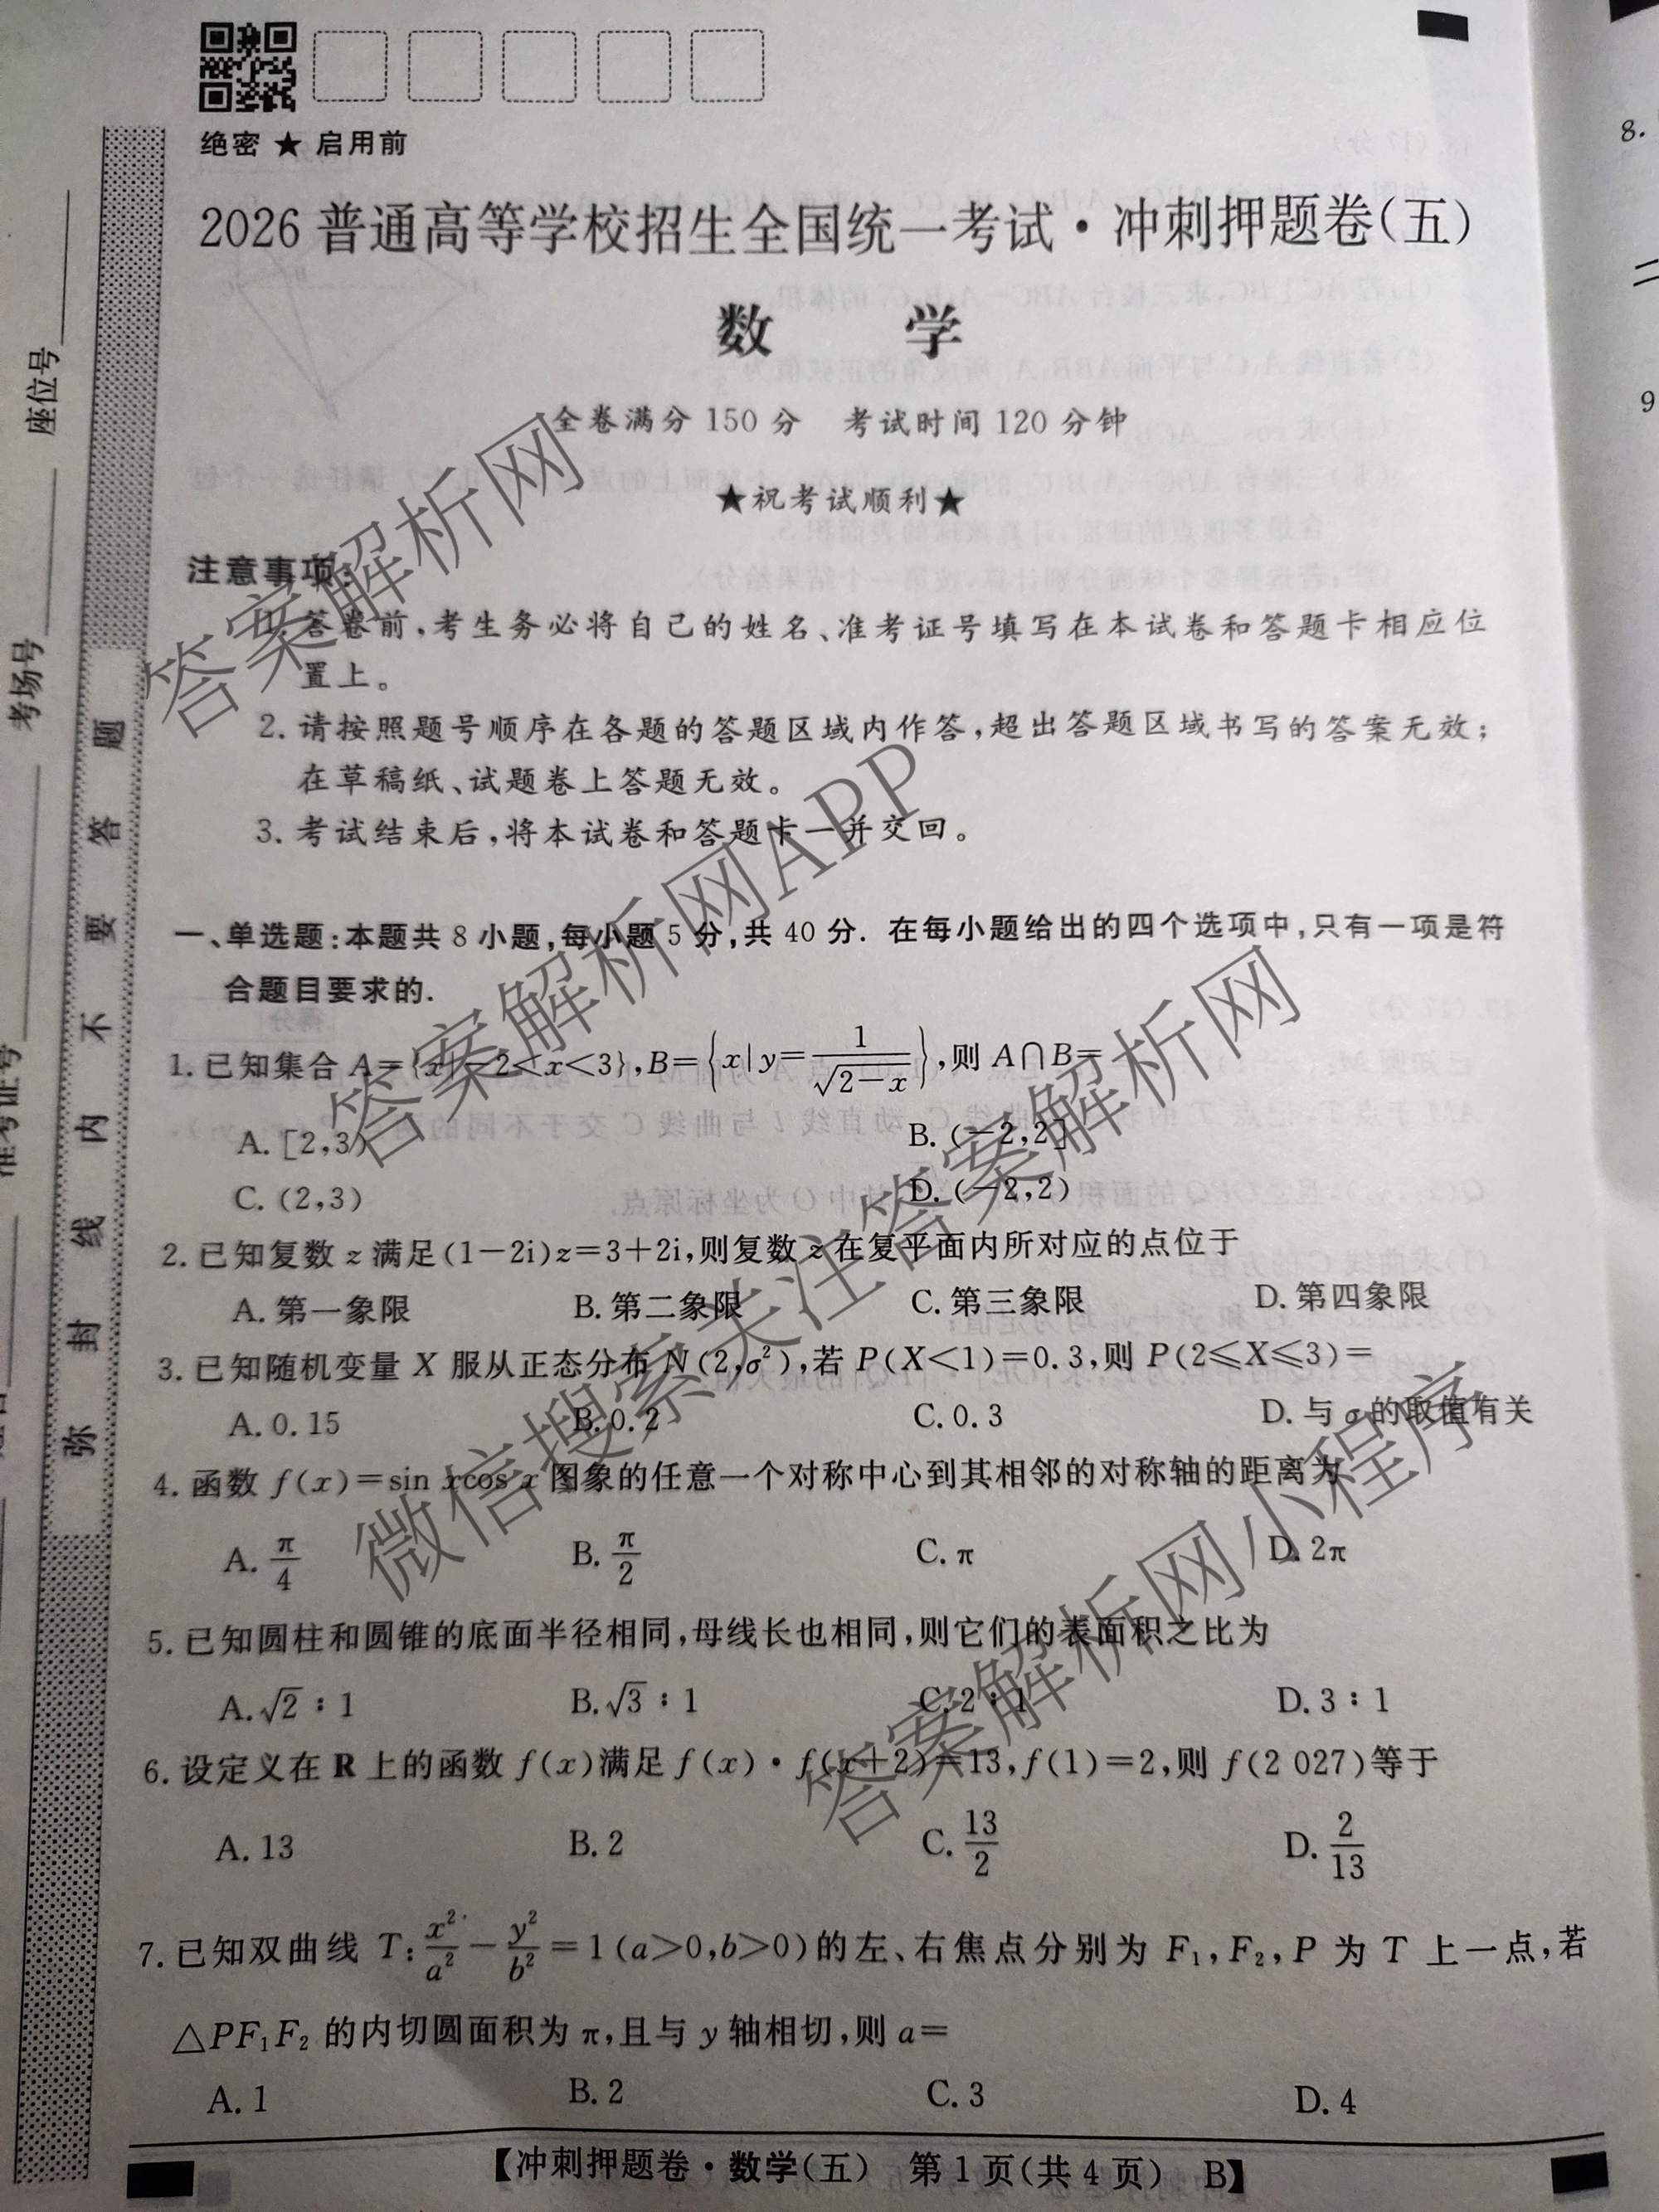 绝密 ★ 启用前
2026 普通高等学校招生全国统一考试·冲刺押题卷(五)
数 学
全卷满分 150 分 考试时间 120 分钟
★祝考试顺利★
注意事项:
1. 答卷前,考生务必将自己的姓名、准考证号填写在本试卷和答题卡相应位
置上。
2. 请按照题号顺序在各题的答题区域内作答,超出答题区域书写的答案无效;
在草稿纸、试题卷上答题无效。
3. 考试结束后,将本试卷和答题卡一并交回。
一、单选题:本题共 8 小题,每小题 5 分,共 40 分. 在每小题给出的四个选项中,只有一项是符
合题目要求的.
1. 已知集合 A={x|-2<x<3},B={x|y=1/√(2-x)},则 A∩B=
A. [2,3) B. (-2,2]
C. (2,3) D. (-2,2)
2. 已知复数 z 满足(1-2i)z=3+2i,则复数 z 在复平面内所对应的点位于
A. 第一象限 B. 第二象限 C. 第三象限 D. 第四象限
3. 已知随机变量 X 服从正态分布 N(2,σ²),若 P(X<1)=0.3,则 P(2≤X≤3)=
A. 0.15 B. 0.2 C. 0.3 D. 与 σ 的取值有关
4. 函数 f(x)=sin xcos x 图象的任意一个对称中心到其相邻的对称轴的距离为
A. π/4 B. π/2 C. π D. 2π
5. 已知圆柱和圆锥的底面半径相同,母线长也相同,则它们的表面积之比为
A. √2∶1 B. √3∶1 C. 2∶1 D. 3∶1
6. 设定义在 R 上的函数 f(x)满足 f(x)·f(x+2)=13,f(1)=2,则 f(2 027)等于
A. 13 B. 2 C. 13/2 D. 2/13
7. 已知双曲线 T:x²/a²-y²/b²=1(a>0,b>0)的左、右焦点分别为 F₁,F₂,P 为 T 上一点,若
△PF₁F₂ 的内切圆面积为 π,且与 y 轴相切,则 a=
A. 1 B. 2 C. 3 D. 4
【冲刺押题卷·数学(五) 第 1 页(共 4 页) B】
座位号
考场号
准考证号
弥 封 线 内 不 要 答 题
8.
二
9
答案解析网
答案解析网APP
微信搜索关注答案解析网
答案解析网小程序